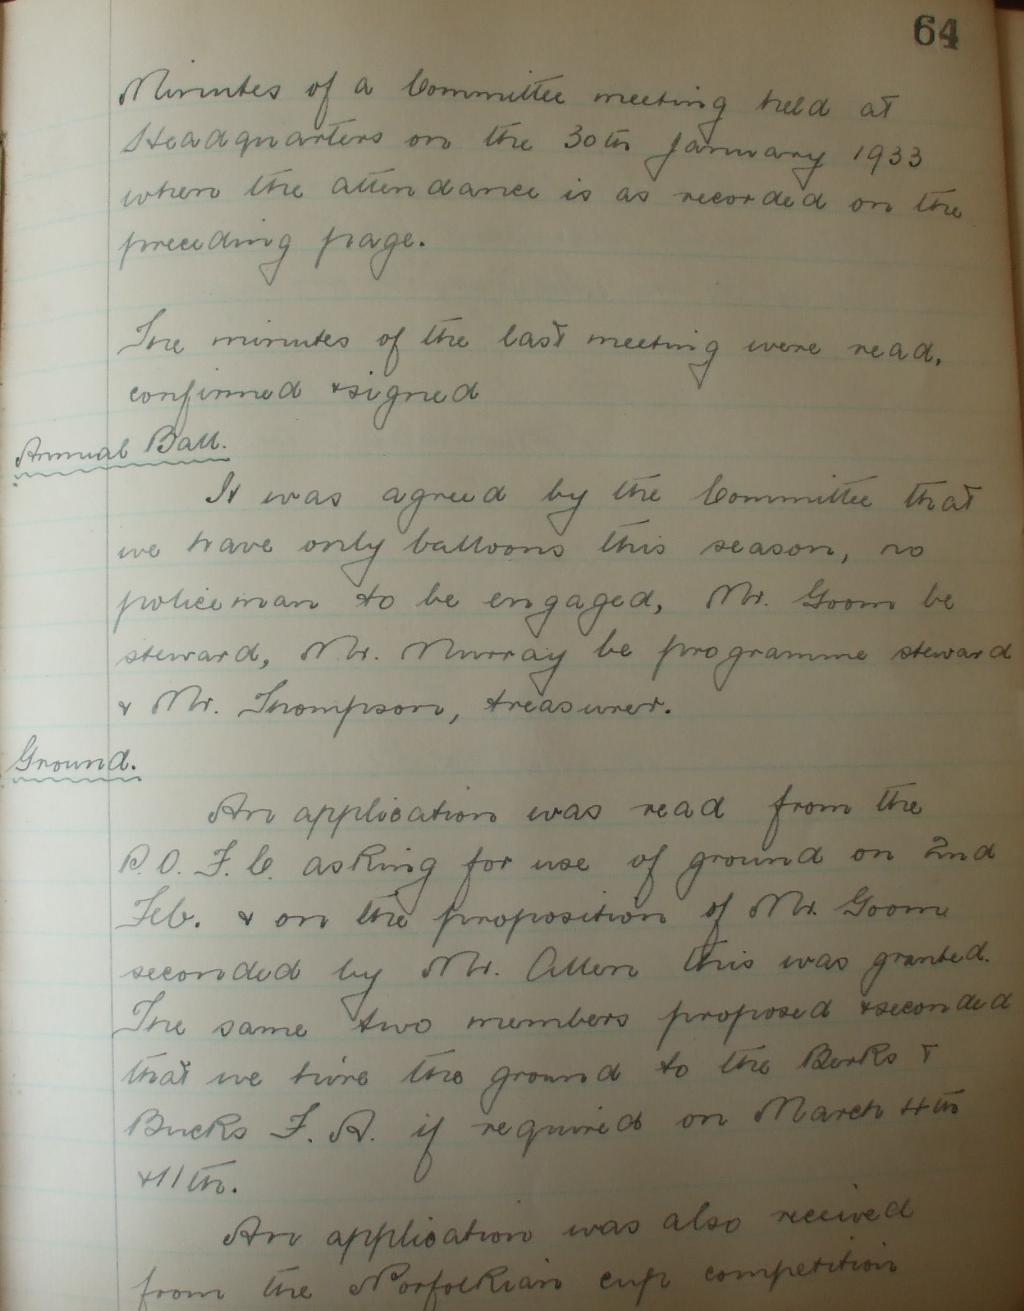 64
Minutes of a Committee meeting held at
Headquarters on the 30th January 1933
when the attendance is as recorded on the
preceding page.
The minutes of the last meeting were read,
confirmed & signed
Annual Ball.
It was agreed by the Committee that
we have only balloons this season, no
policeman to be engaged, Mr. Goom be
steward, Mr. Murray be programme steward
& Mr. Thompson, treasurer.
Ground.
An application was read from the
P.O. F.C. asking for use of ground on 2nd
Feb. & on the proposition of Mr. Goom
seconded by Mr. Allen this was granted.
The same two members proposed & seconded
that we hire the ground to the Berks &
Bucks F.A. if required on March 4th
& 11th.
An application was also received
from the Norfolkian cup competition